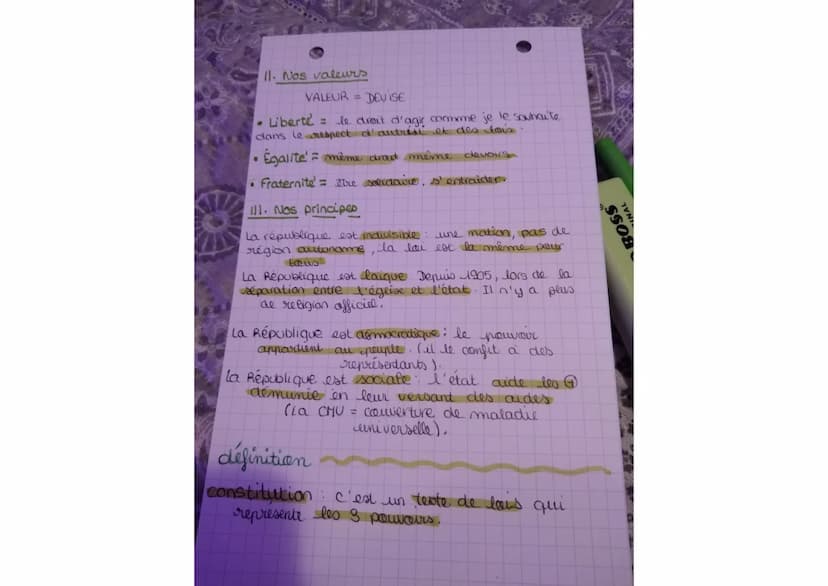 II. Nos valeurs
VALEUR = DEVISE
• Liberté = le droit d'agir comme je le souhaite
dans le respect d'autrui et des lois.
• Égalité = même droit même devoirs
• Fraternité = être solidaire, s'entraider
III. Nos principes
La république est indivisible : une nation, pas de
région autonome, la loi est la même pour
tous
La République est laïque Depuis 1905, lors de la
séparation entre l'église et l'état. Il n'y a plus
de religion officiel.
La République est démocratique : le pouvoir
appartient au peuple. (il le confit à des
représentants).
La République est sociale : l'état aide les +
démunie en leur versant des aides
(la CMU = couverture de maladie
universelle).
définition
constitution : c'est un texte de lois qui
représente les 3 pouvoirs.
BOSS